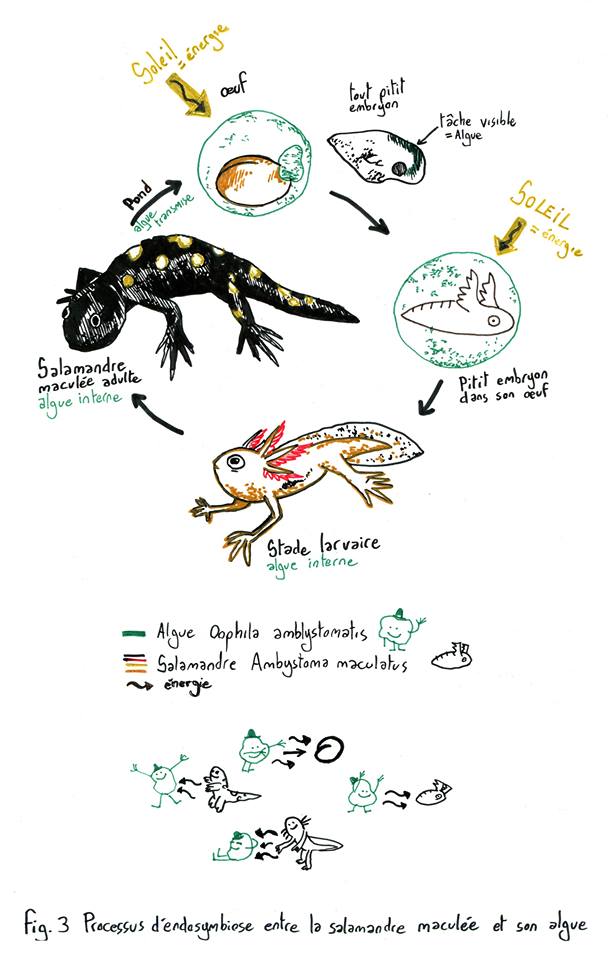 Soleil
= énergie
œuf
tout pitit
embryon
tâche visible
= Algue
Pond
algue
transmise
SOLEIL
= énergie
Salamandre
maculée adulte
algue interne
Pitit embryon
dans son œuf
Stade larvaire
algue interne
Algue Oophila amblystomatis
Salamandre Ambystoma maculatus
énergie
Fig. 3 Processus d'endosymbiose entre la salamandre maculée et son algue